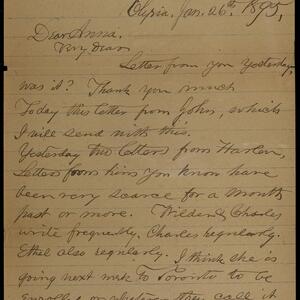 Elyria, Jan. 26th 1895,
Dear Anna.
Very Dear
Letter from you yesterday,
was it? Thank you much
Today this letter from John, which
I will send with this.
Yesterday two letters from Harlan,
Letters from him you know have
been very scarce for a month
past or more. Wilder & Charles
write frequently, Charles regularly.
Ethel also regularly. I think she is
going next week to Toronto to be
they call it